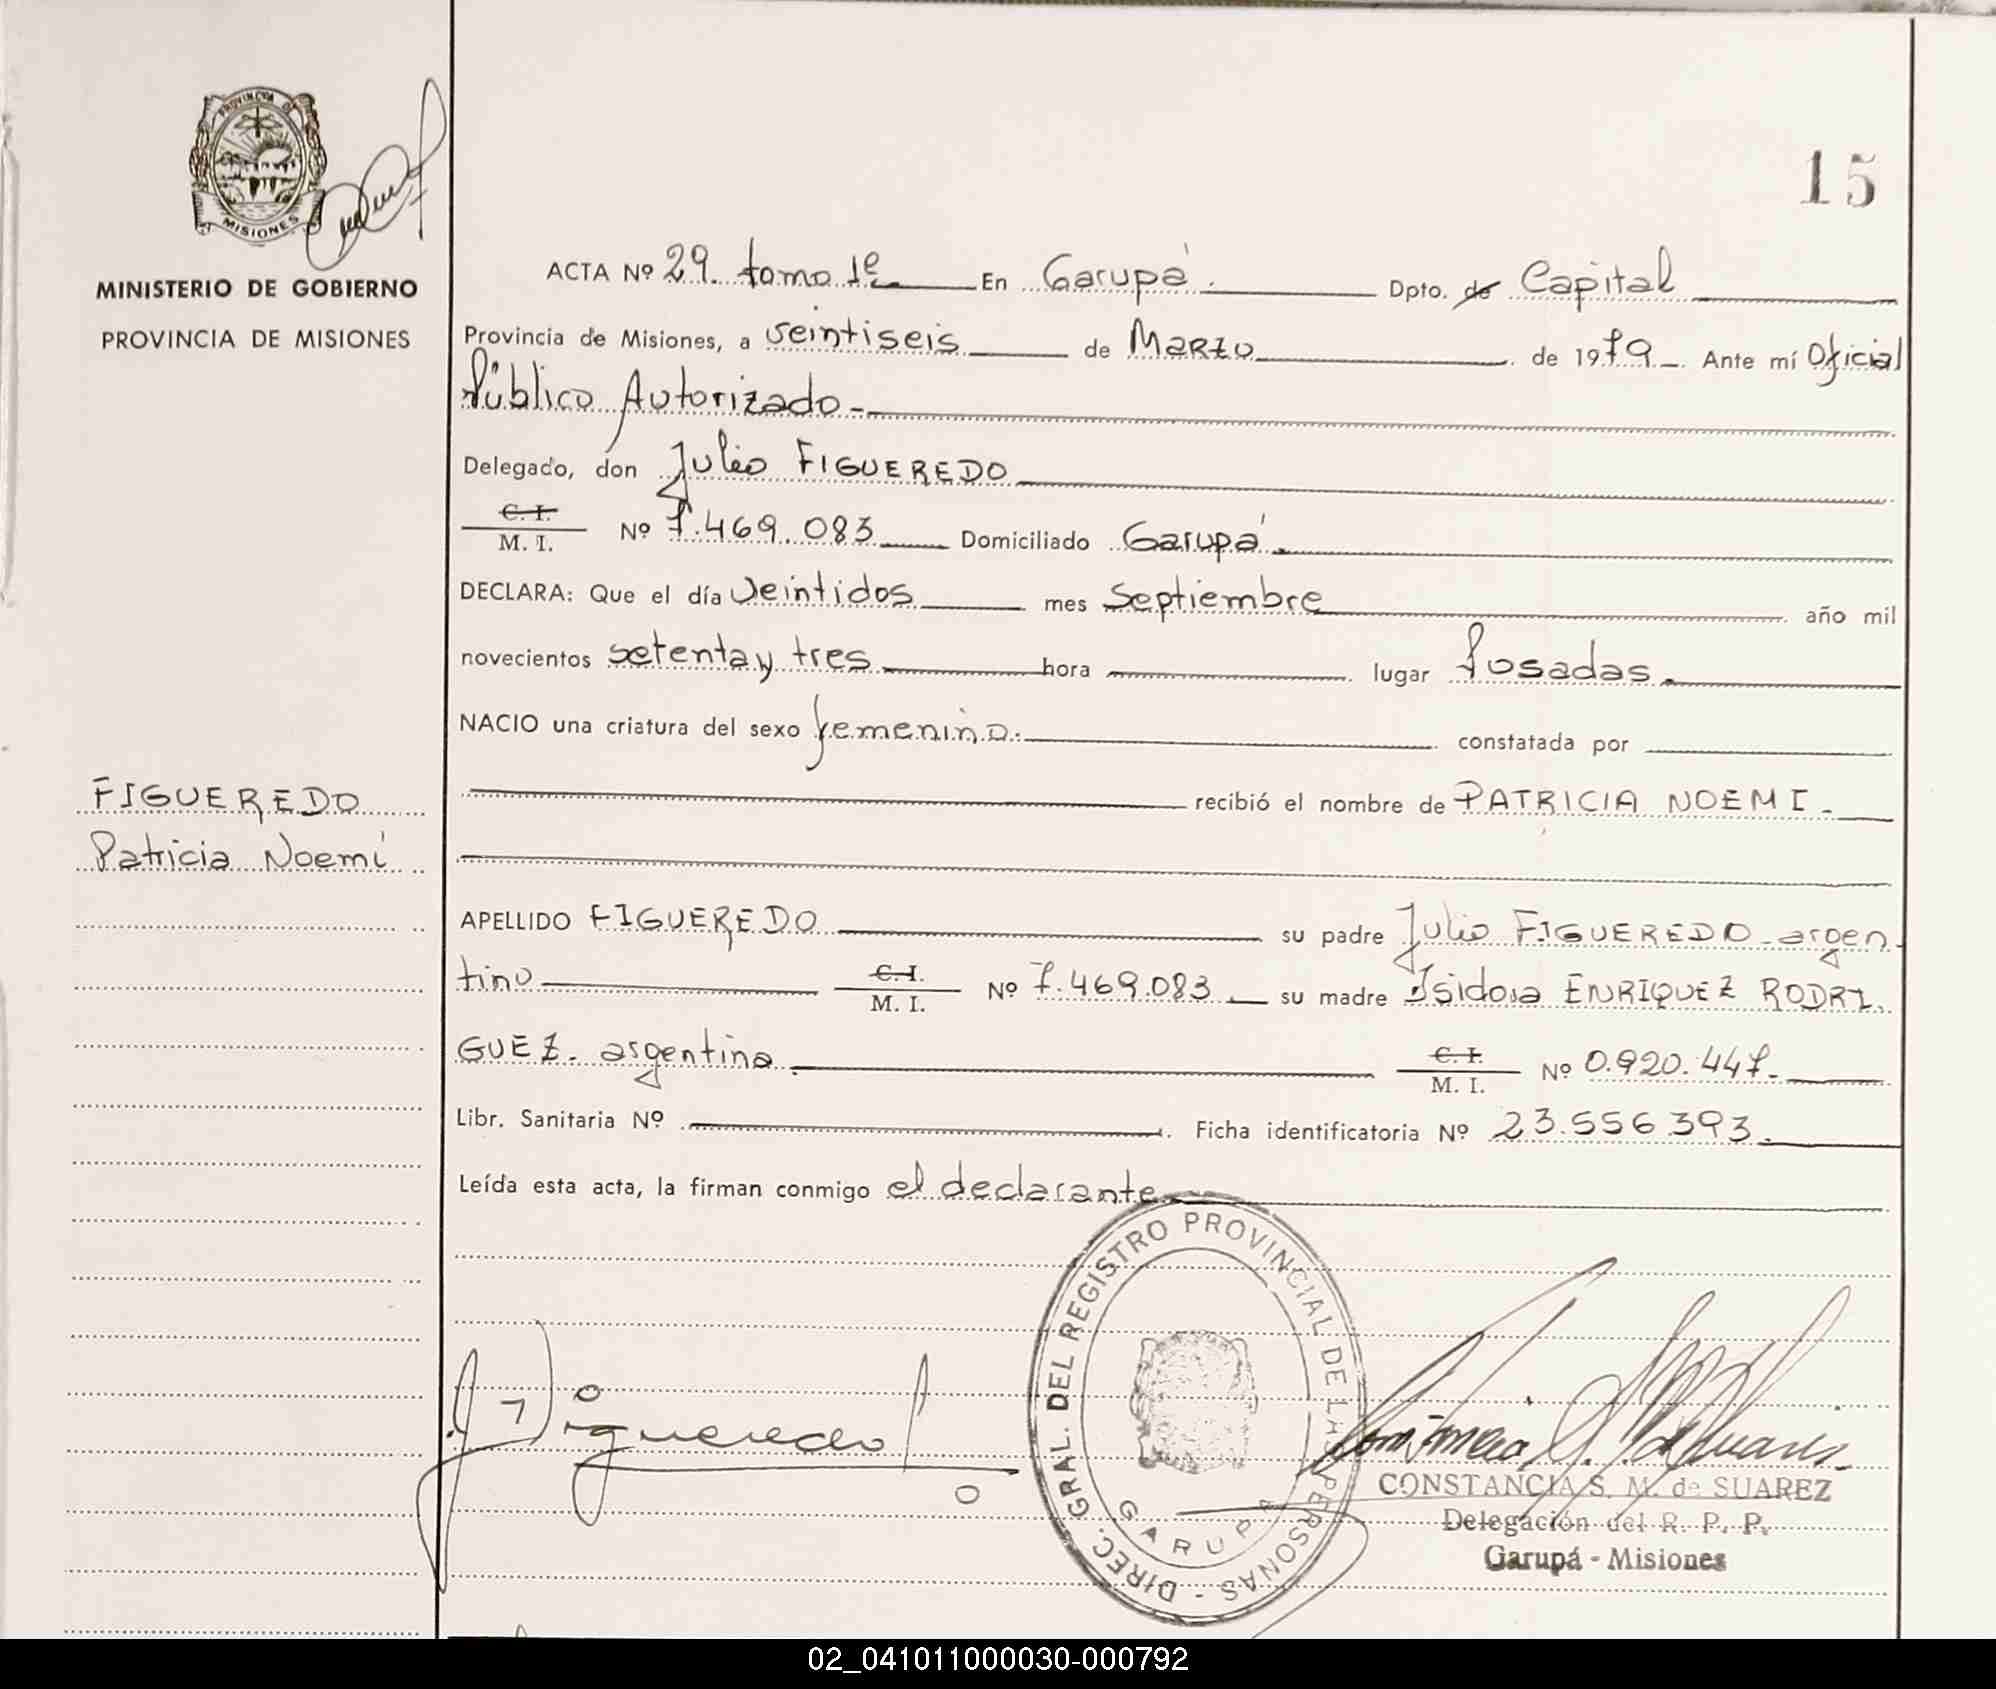 PROVINCIA DE
MISIONES
MINISTERIO DE GOBIERNO
PROVINCIA DE MISIONES
15
ACTA Nº 29. tomo 1º En Garupá. Dpto. de Capital
Provincia de Misiones, a veintiseis de Marzo de 1979 Ante mí Oficial
Público Autorizado
Delegado, don Julio FIGUEREDO
C. I.
M. I. Nº 7.469.083 Domiciliado Garupá.
DECLARA: Que el día veintidos mes septiembre año mil
novecientos setenta y tres hora lugar Posadas.
NACIO una criatura del sexo femenino. constatada por
FIGUEREDO
Patricia Noemí
recibió el nombre de PATRICIA NOEMI.
APELLIDO FIGUEREDO su padre Julio FIGUEREDO - argen
tino C. I.
M. I. Nº 7.469.083 su madre Isidora ENRIQUEZ RODRI
GUEZ. argentina C. I.
M. I. Nº 0.920.447
Libr. Sanitaria Nº Ficha identificatoria Nº 23.556.393
Leída esta acta, la firman conmigo el declarante
J Figueredo
DIREC. GRAL. DEL REGISTRO PROVINCIAL DE LAS PERSONAS -
GARUPA
CONSTANCIA S. M. de SUAREZ
Delegación del R. P. P.
Garupá - Misiones
02_041011000030-000792